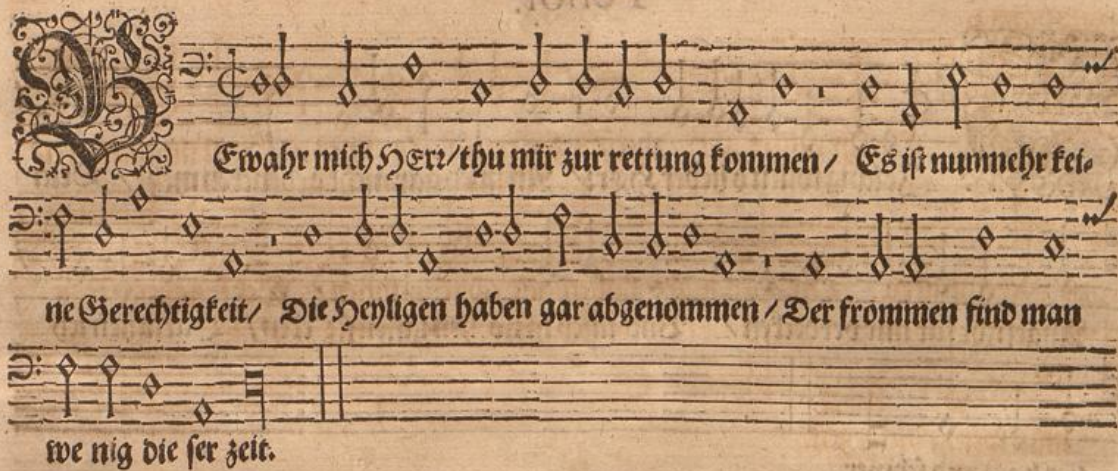 BEwahr mich HErr/thu mir zur rettung kommen/ Es ist nunmehr kei-
ne Gerechtigkeit/ Die Heyligen haben gar abgenommen/Der frommen find man
we nig die ser zeit.